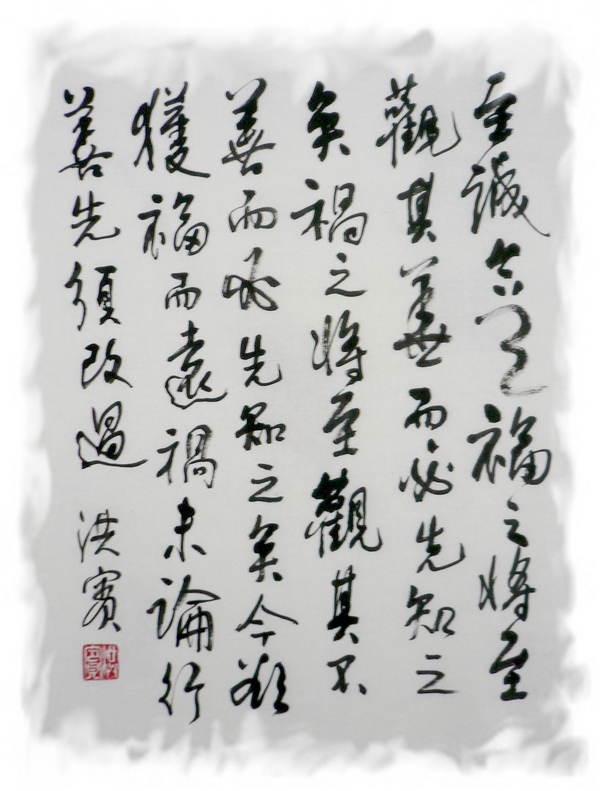 至誠合天福之將至
觀其善而必先知之
矣禍之將至觀其不
善而必先知之矣今欲
獲福而遠禍未論行
善先須改過
洪賓